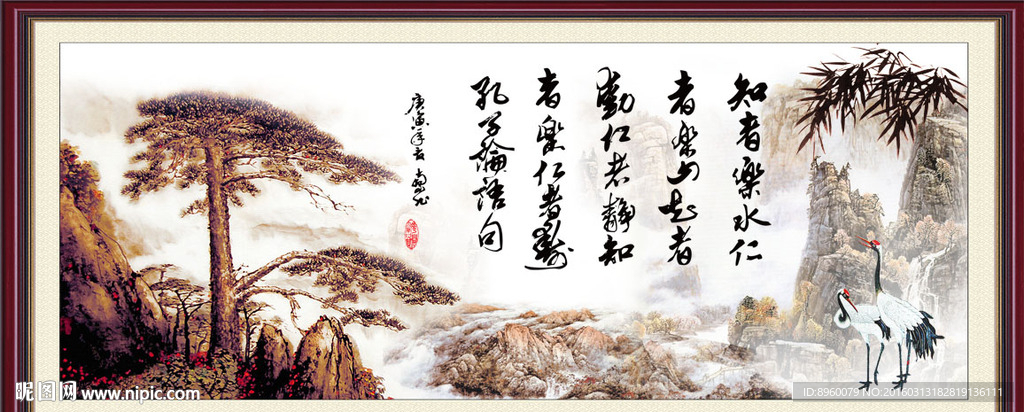 知者樂水仁
者樂山知者
動仁者靜知
者樂仁者壽
孔子論語句
庚寅年
昵图网 www.nipic.com
ID:8960079 NO:20160313182819136111